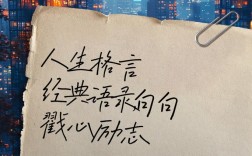 人生格言
经典语录句句
戳心励志